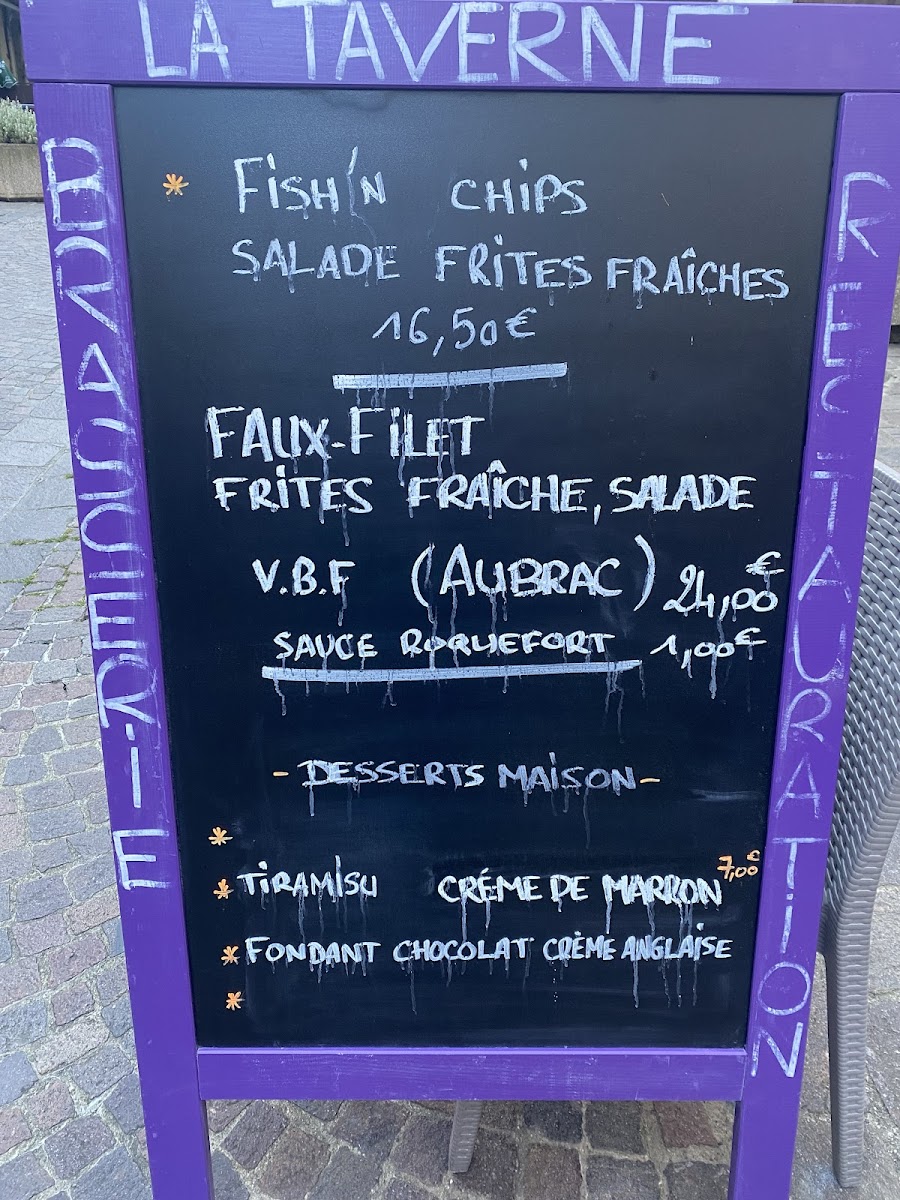 LA TAVERNE
BRASSERIE
FISH'N CHIPS
SALADE FRITES FRAÎCHES
16,50€
FAUX-FILET
FRITES FRAÎCHE, SALADE
V.B.F (AUBRAC) 24,00€
SAUCE ROQUEFORT 1,00€
- DESSERTS MAISON -
* TIRAMISU CRÉME DE MARRON 7,00€
* FONDANT CHOCOLAT CRÈME ANGLAISE
RESTAURATION